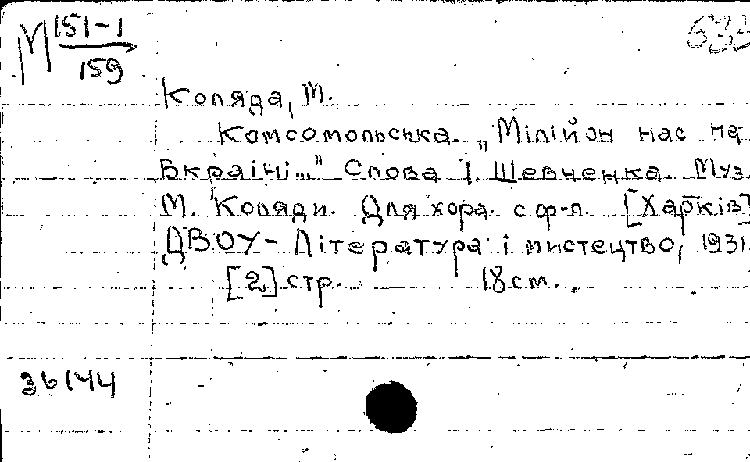 М 151-1
159
Коляда, М.
Комсомольська. „Мілійон нас на
Вкраїні..." Слова І. Шевченка. Муз.
М. Коляди. Для хора с ф-п. [Харків]
ДВОУ - Література і мистецтво, 1931.
[2] стр. 18 см.
36144